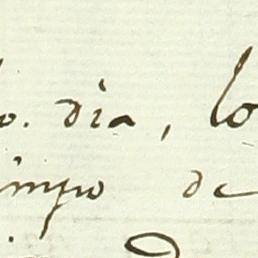 o. dia, lo
impo de